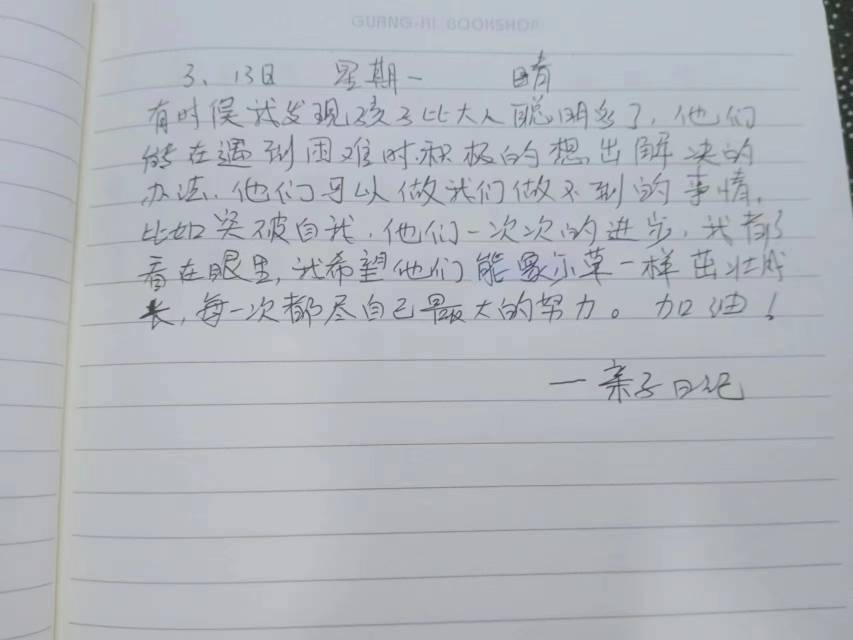 GUANG-RI BOOKSHOP
3、13日 星期一 晴
有时候我发现孩子比大人聪明多了，他们
能在遇到困难时积极的想出解决的
办法，他们可以做我们做不到的事情，
比如突破自我，他们一次次的进步，我都
看在眼里，我希望他们能像小草一样茁壮成
长，每一次都尽自己最大的努力。加油！
一亲子日记